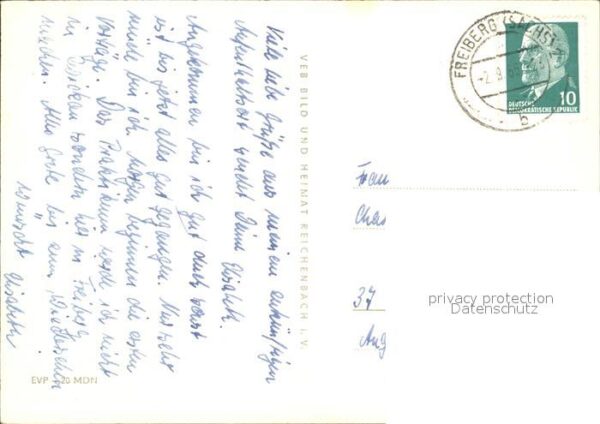 Viele liebe Grüße aus meinem zukünftigen
Aufenthaltsort sendet Dir Elisabeth.
Angekommen bin ich gut auch sonst
ist bis jetzt alles gut gegangen. Nur sehr
müde bin ich. Morgen beginnen die ersten
Vorträge. Das Praktikum werde ich nicht
in Zwickau sondern hier in Freiberg
machen. Alles Gute bis zum Wiedersehen
wünscht Elisabeth
VEB BILD UND HEIMAT REICHENBACH I. V.
EVP 20 MDN
FREIBERG (SACHS) 1
b
DEUTSCHE
DEMOKRATISCHE REPUBLIK
10
Frau
37
privacy protection
Datenschutz